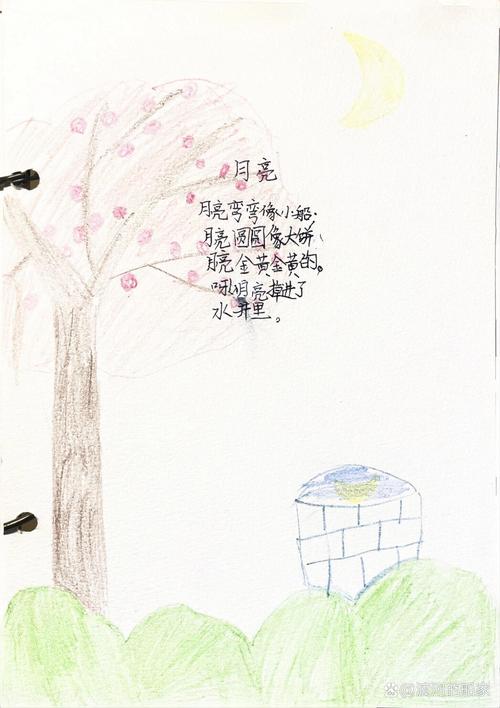 月亮
月亮弯弯像小船.
月亮圆圆像大饼、
月亮金黄金黄的。
呀!月亮掉进了
水井里。